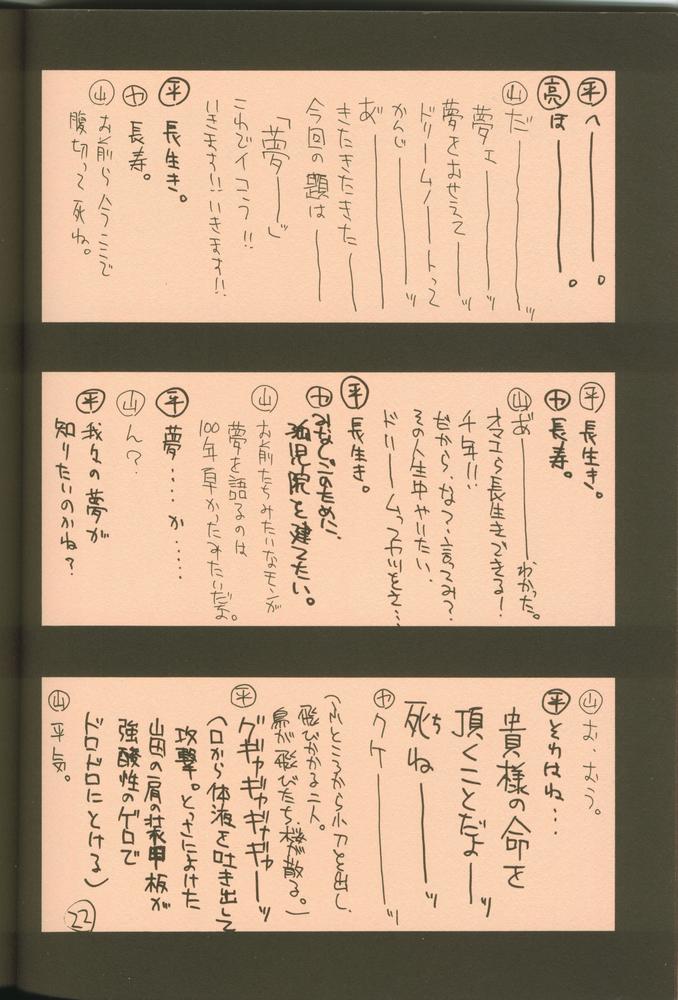 ㊥へ――――。
亮は――――。
山だ――――ッ
夢ェ――――ッ
夢をおせえて――ッ
ドリーム／――トって
かんじ――――ッ
あ゛――――
きたきたきたきた――
今回の題は――
「夢――」
これでイコう!!
いきます!!いきます!!
平 長生き。
ヤ 長寿。
山 お前ら今ここで
腹切って死ね。
平 長生き。
ヤ 長寿。
山 あ゛――――わかった。
オマエら長生きできる!
千年!!
だから、な?、言ってみ?
その人生中やりたい、
ドリームってヤツをさ…
平 長生き。
ヤ みなしごのために、
孤児院を建てたい。
山 お前たちみたいなモンが
夢を語るのは
100年早かったみたいだよ。
平 夢‥‥か‥‥‥
山 ん?
平 我々の夢が
知りたいのかね?
山 お、おう。
平 それはね…
貴様の命を
頂くことだよ――ッ
死ね――――ッ
ち
ヤ クケ――――ッ
(ふところから小刀を出し、
飛びかかる二人。
鳥が飛びたち、桜が散る。)
平 グギャギャギャギャ――ッ
(口から体液を吐き出して
攻撃。とっさによけた
山田の肩の装甲板が
強酸性のゲロで
ドロドロにとける)
山 平気。
22